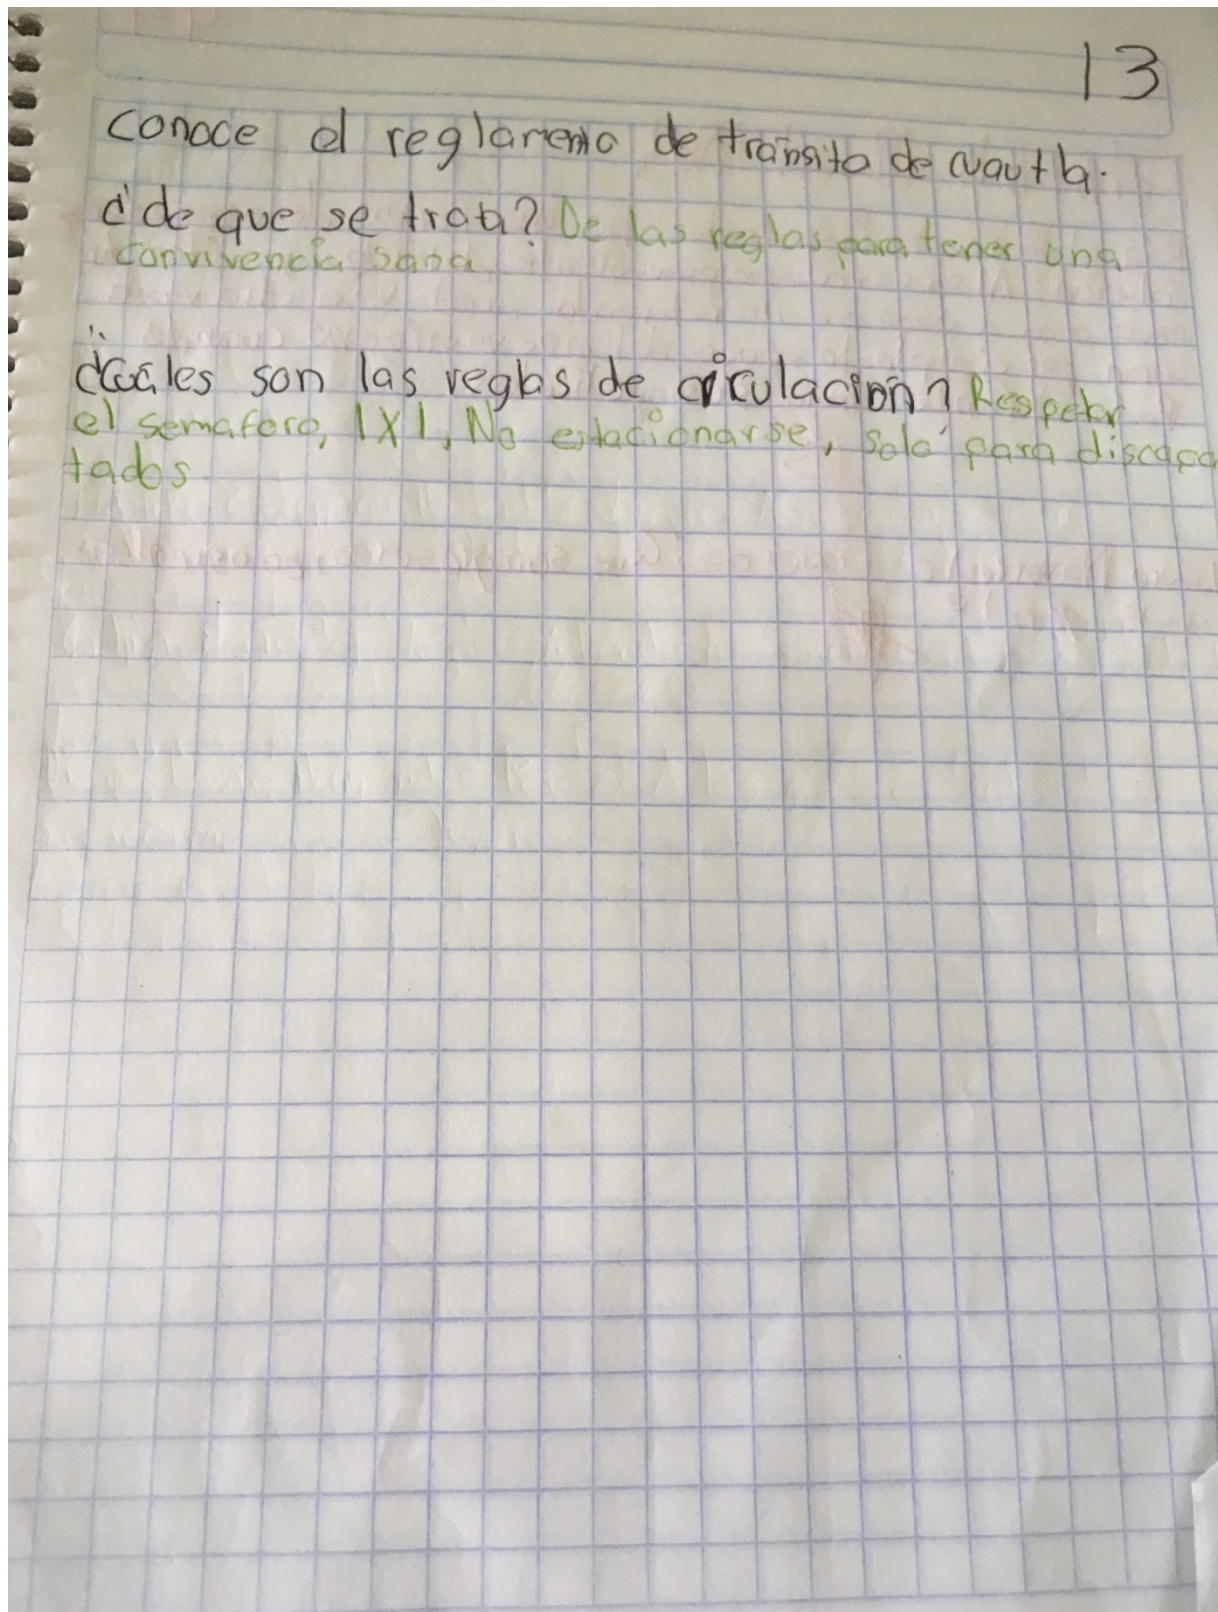 13
conoce el reglamento de tránsito de cuautla.
¿de que se trata? De las reglas para tener una
convivencia sana
¿cuáles son las reglas de circulación? Respetar
el semaforo, 1X1, No estacionarse, solo para discapa
tados